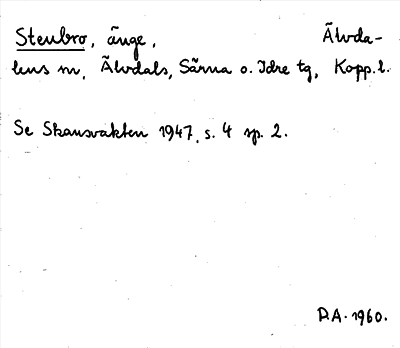 Stenbro, änge, Älvda-
lens m, Älvdals, Särna o. Idre tg, Kopp. l.
Se Skansvakten 1947, s. 4 sp. 2.
D.A. 1960.